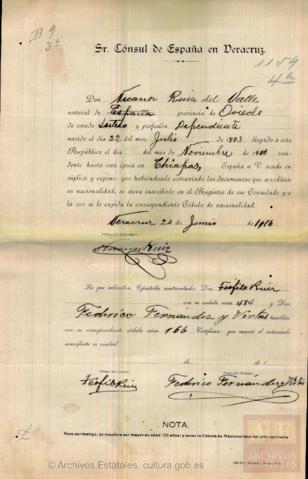 B 9
3ª
Sr. Cónsul de España en Veracruz.
1189
4ª
Don Nicanor Ruiz del Valle
natural de España provincia de Oviedo
de estado soltero y profesión Dependiente
nacido el día 22 del mes Julio de 1883 llegado a esta
República el día del mes de Noviembre de 190
residente hasta esta época en Chiapas, España a V. acude en
súplica y expone que habiéndosele extraviado los documentos que acreditan
su nacionalidad, se sirva inscribirle en el Registro de ese Consulado y a
la vez se le expida la correspondiente Cédula de nacionalidad.
Veracruz 20 de Junio de 1906
Nicanor Ruiz
Los que subscriben, Españoles matriculados, Don Teófilo Ruiz
con su cédula núm. 484 y Don
Federico Fernandez y Virtus también
con su correspondiente cédula núm. 166 Certifican que cuanto el interesado
manifiesta es verdad.
de de 1
Firma del testigo, Firma del testigo,
Teófilo Ruiz Federico Fernández Virtus
NOTA.
Para ser testigo, se requiere ser mayor de edad (25 años) y tener la Cédula de Nacionalidad del año corriente
© Archivos Estatales, cultura.gob.es
ARCHIVOS